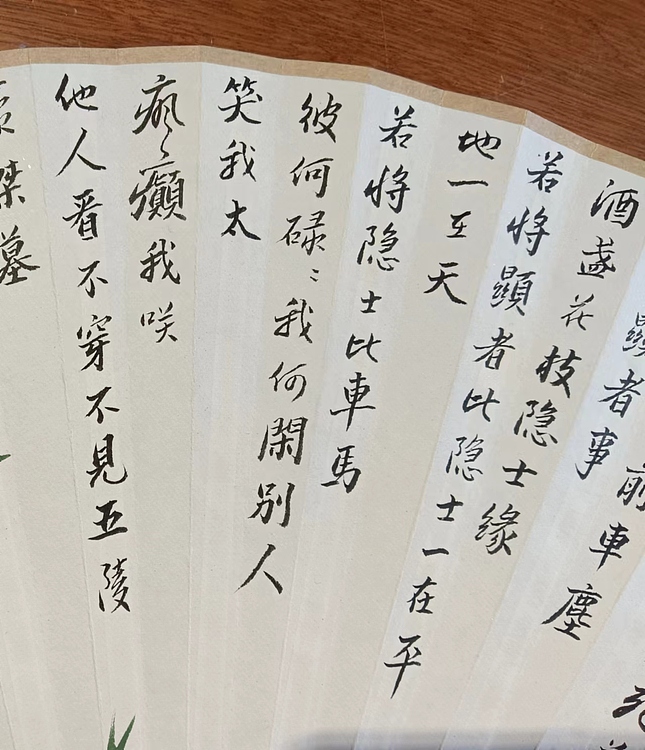 前車塵
顯者事
酒盞花枝隐士緣
若將顯者比隐士一在平
地一在天
若將隐士比車馬
彼何碌〻我何閑别人
笑我太
瘋〻癲我咲
他人看不穿不見五陵
豪傑墓